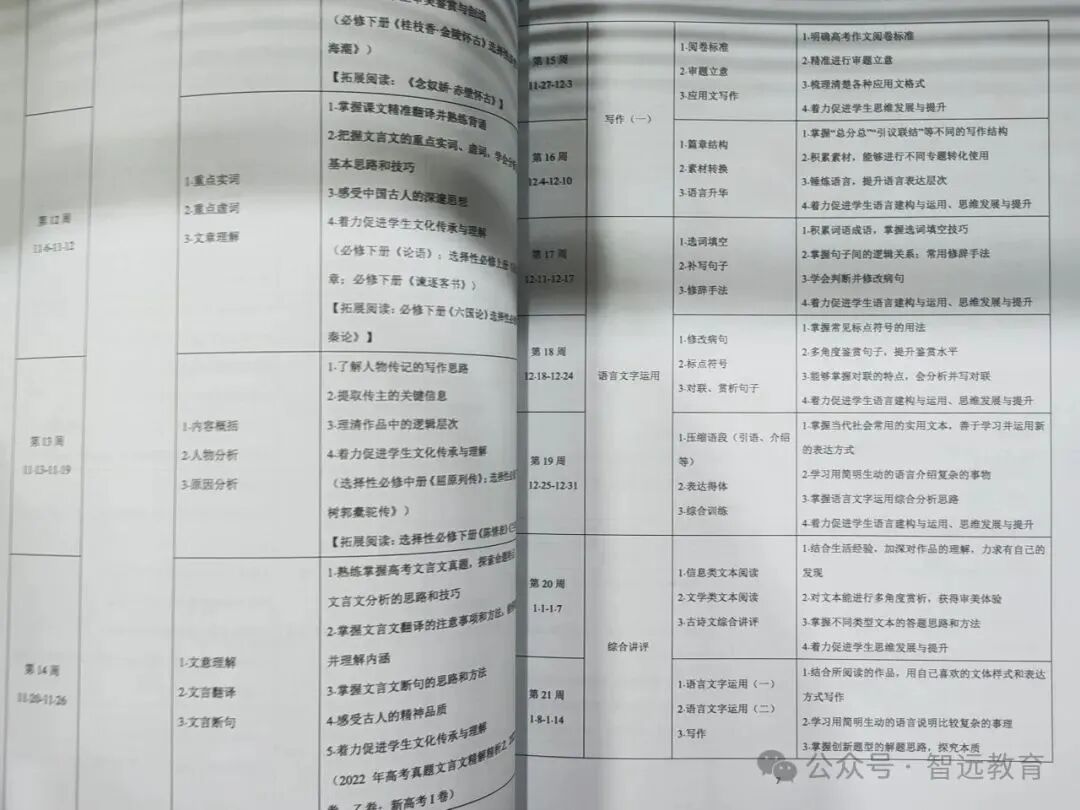 审美鉴赏与创造
(必修下册《桂枝香·金陵怀古》选择性必
海潮》)
【拓展阅读:《念奴娇·赤壁怀古》】
第 12 周
11-6-11-12
1-重点实词
2-重点虚词
3-文章理解
1-掌握课文精准翻译并熟练背诵
2-把握文言文的重点实词、虚词,学会分
基本思路和技巧
3-感受中国古人的深邃思想
4-着力促进学生文化传承与理解
(必修下册《论语》;选择性必修上册
章;必修下册《谏逐客书》)
【拓展阅读:必修下册《六国论》选择性必
秦论》】
第 13 周
11-13-11-19
1-内容概括
2-人物分析
3-原因分析
1-了解人物传记的写作思路
2-提取传主的关键信息
3-理清作品中的逻辑层次
4-着力促进学生文化传承与理解
(选择性必修中册《屈原列传》;选择性必
树郭橐驼传》)
【拓展阅读:选择性必修下册《陈情表》
第 14 周
11-20-11-26
1-文意理解
2-文言翻译
3-文言断句
1-熟练掌握高考文言文真题,探索命题
文言文分析的思路和技巧
2-掌握文言文翻译的注意事项和方法,
并理解内涵
3-掌握文言文断句的思路和方法
4-感受古人的精神品质
5-着力促进学生文化传承与理解
(2022 年高考真题文言文精解精析2.
卷、乙卷;新高考 1 卷)
第 15 周
11-27-12-3
写作(一)
1-阅卷标准
2-审题立意
3-应用文写作
1-明确高考作文阅卷标准
2-精准进行审题立意
3-梳理清楚各种应用文格式
4-着力促进学生思维发展与提升
第 16 周
12-4-12-10
1-篇章结构
2-素材转换
3-语言升华
1-掌握“总分总”“引议联结”等不同的写作结构
2-积累素材,能够进行不同专题转化使用
3-锤炼语言,提升语言表达层次
4-着力促进学生语言建构与运用、思维发展与提升
第 17 周
12-11-12-17
语言文字运用
1-选词填空
2-补写句子
3-修辞手法
1-积累词语成语,掌握选词填空技巧
2-掌握句子间的逻辑关系;常用修辞手法
3-学会判断并修改病句
4-着力促进学生语言建构与运用、思维发展与提升
第 18 周
12-18-12-24
1-修改病句
2-标点符号
3-对联、赏析句子
1-掌握常见标点符号的用法
2-多角度鉴赏句子,提升鉴赏水平
3-能够掌握对联的特点,会分析并写对联
4-着力促进学生语言建构与运用、思维发展与提升
第 19 周
12-25-12-31
1-压缩语段(引语、介绍
等)
2-表达得体
3-综合训练
1-掌握当代社会常用的实用文本,善于学习并运用新
的表达方式
2-学习用简明生动的语言介绍复杂的事物
3-掌握语言文字运用综合分析思路
4-着力促进学生语言建构与运用、思维发展与提升
第 20 周
1-1-1-7
综合讲评
1-信息类文本阅读
2-文学类文本阅读
3-古诗文综合讲评
1-结合生活经验,加深对作品的理解,力求有自己的
发现
2-对文本能进行多角度赏析,获得审美体验
3-掌握不同类型文本的答题思路和方法
4-着力促进学生思维发展与提升
第 21 周
1-8-1-14
1-语言文字运用(一)
2-语言文字运用(二)
3-写作
1-结合所阅读的作品,用自己喜欢的文体样式和表达
方式写作
2-学习用简明生动的语言说明比较复杂的事理
3-掌握创新题型的解题思路,探究本质
7
公众号·智远教育